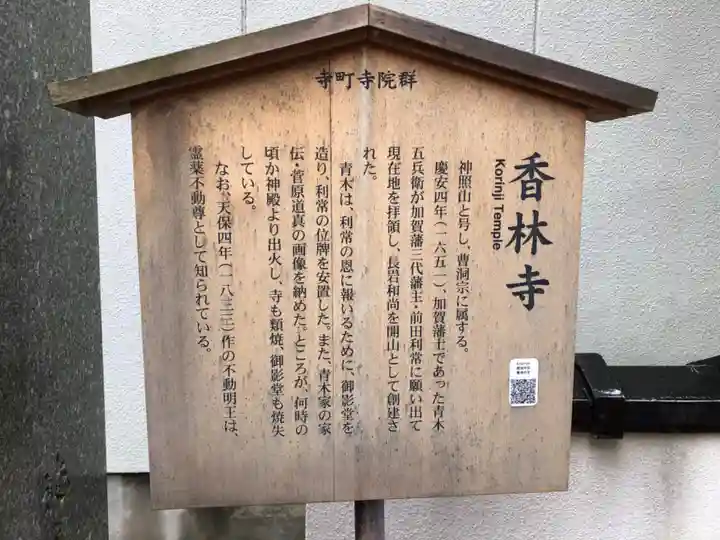 寺町寺院群
香林寺
Korinji Temple
神照山と号し、曹洞宗に属する。
慶安四年(一六五一)、加賀藩士であった青木
五兵衛が加賀藩三代藩主・前田利常に願い出て
現在地を拝領し、長岩和尚を開山として創建さ
れた。
青木は、利常の恩に報いるために、御影堂を
造り、利常の位牌を安置した。また、青木家の家
伝・菅原道真の画像を納めた。ところが、何時の
頃か神殿より出火し、寺も類焼、御影堂も焼失
している。
なお、天保四年(一八三三)作の不動明王は、
霊薬不動尊として知られている。